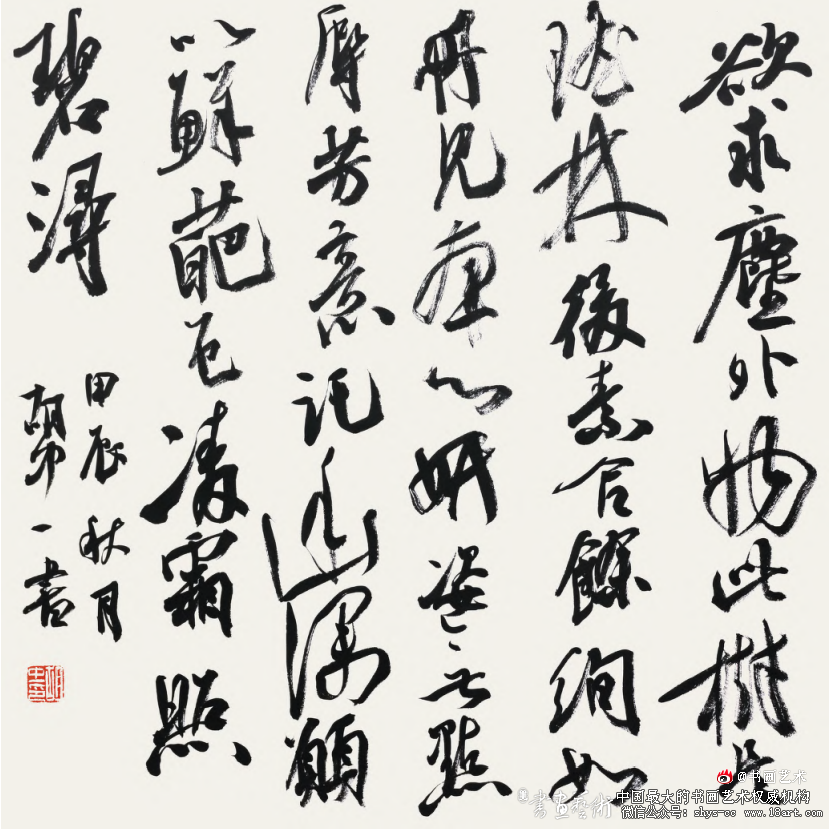 欲求塵外物此樹是
瑤林後素合餘絢如
丹見本心妍姿無點
辱芳意託幽深願
以鮮葩色凌霜照
碧潯
甲辰秋月
胡一書
@书画艺术
書畫藝術
中国最大的书画艺术权威机构
微信公众号: shys-cc www.18art.com